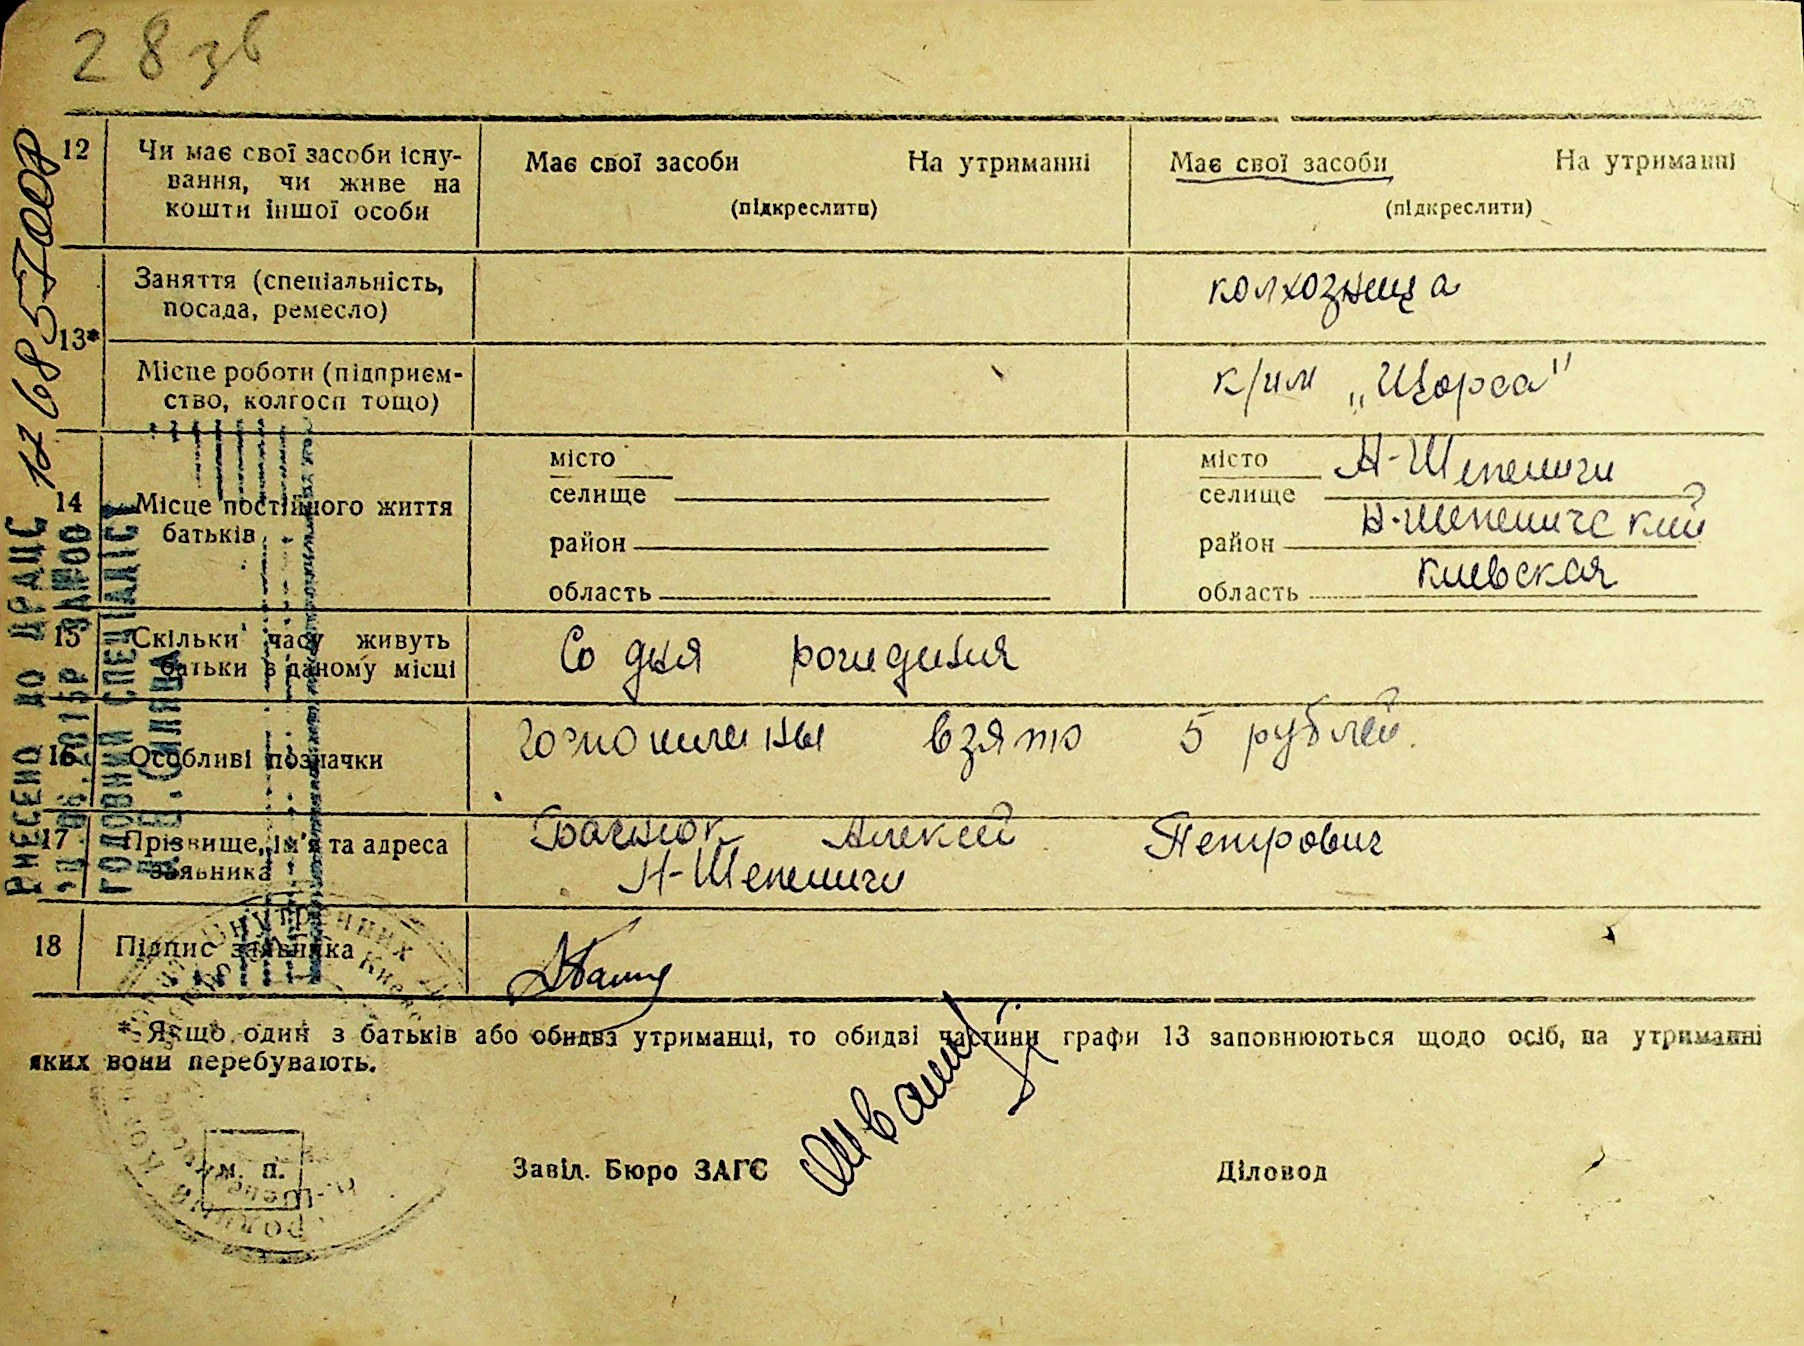 28 зв
12 Чи має свої засоби існу-
вання, чи живе на
кошти іншої особи
Має свої засоби На утриманні
(підкреслити)
Має свої засоби На утриманні
(підкреслити)
13*
Заняття (спеціальність,
посада, ремесло)
колхозница
Місце роботи (підприєм-
ство, колгосп тощо)
к/им „Щорса"
14 Місце постійного життя
батьків
місто
селище
район
область
місто Н-Шепеличи
селище
район Н-Шепеличский
область Киевская
15 Скільки часу живуть
батьки в даному місці
Со дня рождения
16 Особливі позначки
Госпошлины взято 5 рублей.
17 Прізвище, ім'я та адреса
заявника
Алексей Петрович
Н-Шепеличи
18 Підпис заявника
* Якщо один з батьків або обидва утриманці, то обидві частини графи 13 заповнюються щодо осіб, на утриманні
яких вони перебувають.
м. п.
Завід. Бюро ЗАГС
Діловод
ВНЕСЕНО ДО ДРАЦС
ГОЛОВНИЙ СПЕЦІАЛІСТ